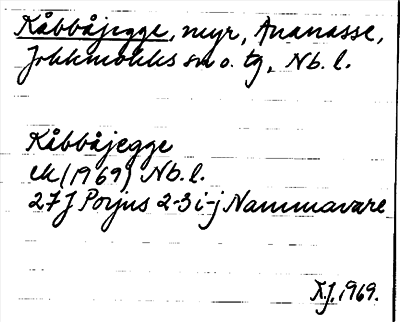 Kåbbåjegge, myr, Ananasse,
Jokkmokks sn o. tg, Nb. l.
Kåbbåjegge
ek (1969) Nb. l.
27J Porjus 2-3 i-j Nammavare
X.J. 1969.